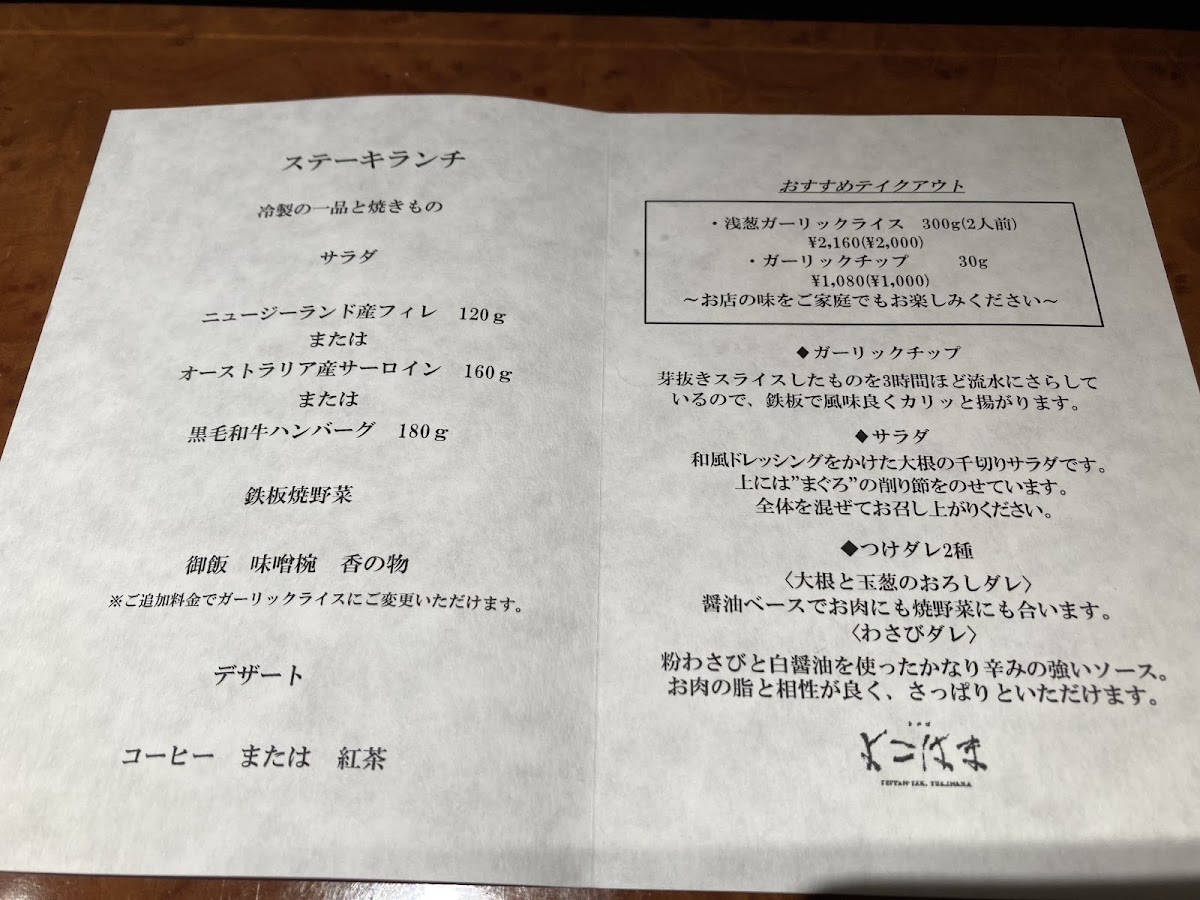 ステーキランチ
冷製の一品と焼きもの
サラダ
ニュージーランド産フィレ 120g
または
オーストラリア産サーロイン 160g
または
黒毛和牛ハンバーグ 180g
鉄板焼野菜
御飯 味噌椀 香の物
※ご追加料金でガーリックライスにご変更いただけます。
デザート
コーヒー または 紅茶
おすすめテイクアウト
・浅葱ガーリックライス 300g(2人前)
¥2,160(¥2,000)
・ガーリックチップ 30g
¥1,080(¥1,000)
～お店の味をご家庭でもお楽しみください～
◆ガーリックチップ
芽抜きスライスしたものを3時間ほど流水にさらして
いるので、鉄板で風味良くカリッと揚がります。
◆サラダ
和風ドレッシングをかけた大根の千切りサラダです。
上には”まぐろ”の削り節をのせています。
全体を混ぜてお召し上がりください。
◆つけダレ2種
〈大根と玉葱のおろしダレ〉
醤油ベースでお肉にも焼野菜にも合います。
〈わさびダレ〉
粉わさびと白醤油を使ったかなり辛みの強いソース。
お肉の脂と相性が良く、さっぱりといただけます。